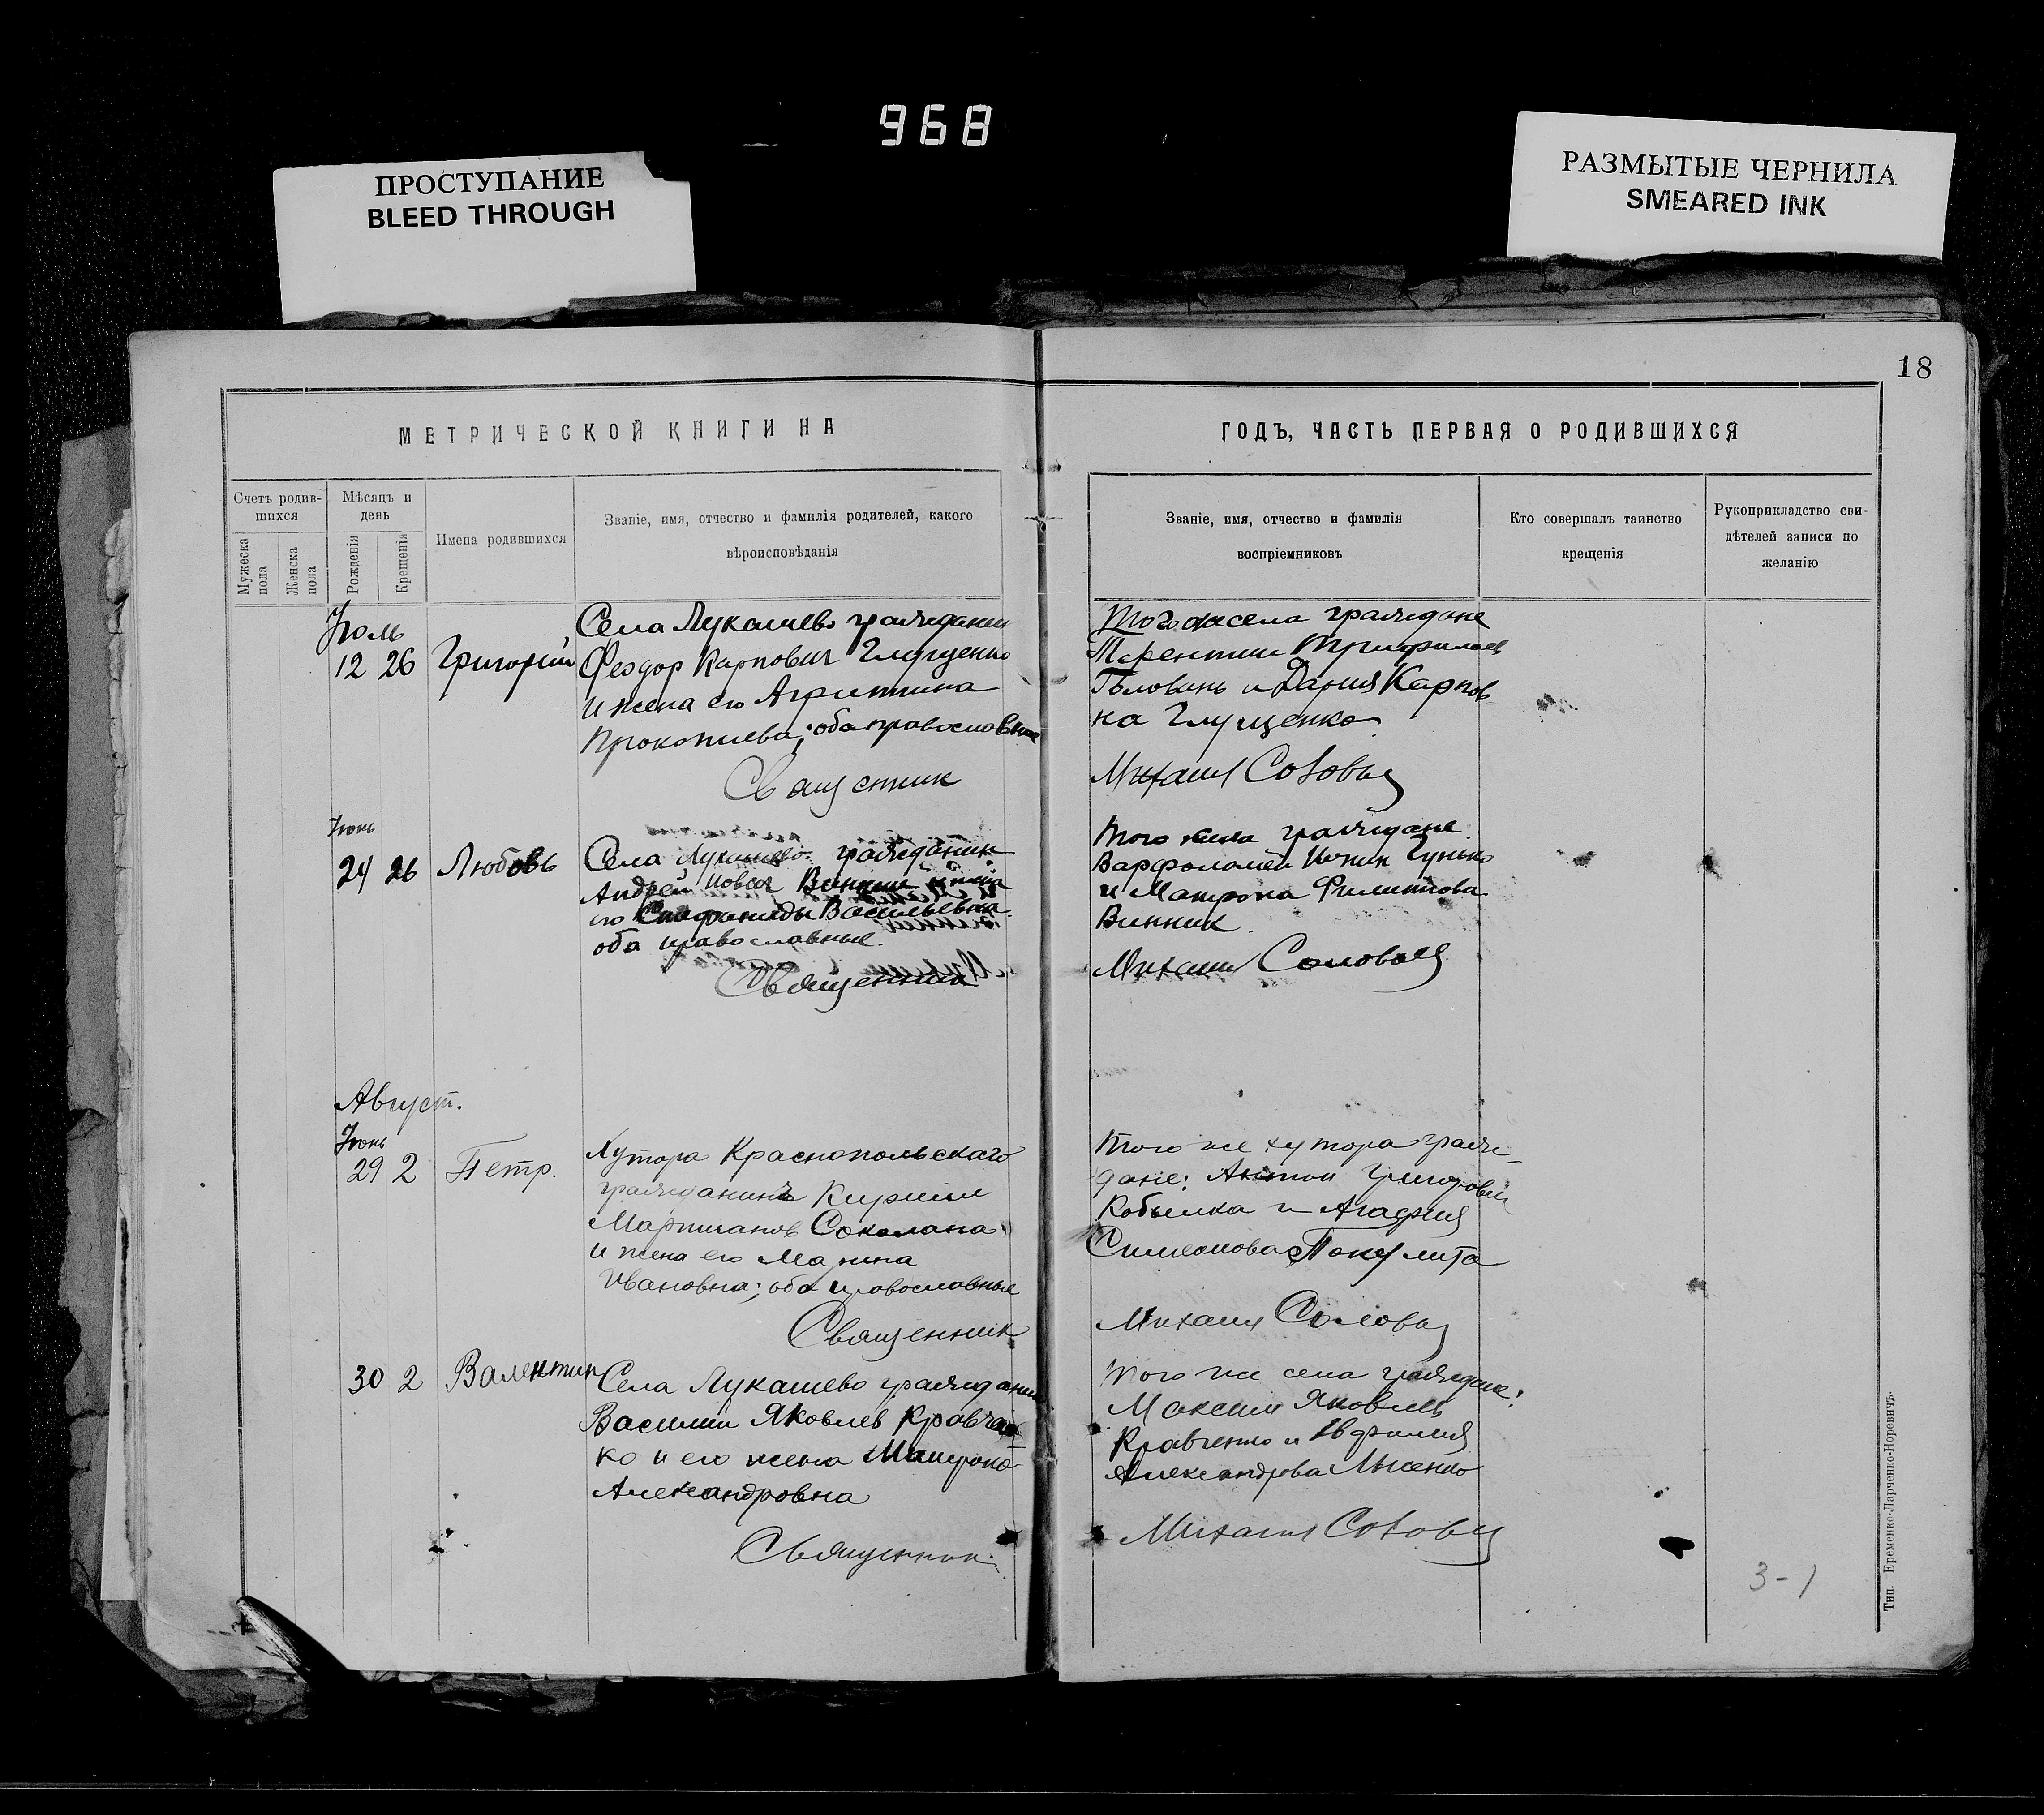 968
ПРОСТУПАНИЕ
BLEED THROUGH
РАЗМЫТЫЕ ЧЕРНИЛА
SMEARED INK
18
МЕТРИЧЕСКОЙ КНИГИ НА
ГОДЪ, ЧАСТЬ ПЕРВАЯ О РОДИВШИХСЯ
Счетъ родив-
шихся
Мужеска
пола
Женска
пола
Мѣсяцъ и
день
Рожденія
Крещенія
Имена родившихся
Званіе, имя, отчество и фамилія родителей, какого
вѣроисповѣданія
Званіе, имя, отчество и фамилія
воспріемниковъ
Кто совершалъ таинство
крещенія
Рукоприкладство сви-
дѣтелей записи по
желанію
Июль
12 26 Григорий
Села Лукашево гражданин
Феодор Карпович Глущенко
и жена его Агриппина
Прокопиева; оба православные
Священник
Того же села граждане
Терентий
Головинь и Дария Карпов
на Глущенко
Михаил Соловьев
Июнь
24 26 Любовь
Села Лукашево гражданин
Андрей Винник и жена
его Стефанида Васильевна
оба православные.
Священник
Того села граждане
Варфоломей Гунько
и Матрона Филиппова
Винник.
Михаил Соловьев
Август.
Июнь
29 2 Петр.
Хутора Краснопольскаго
гражданинъ Кирилл
Мартинов
и жена его Марина
Ивановна; оба православные
Священник
Того же хутора граж-
дане: Антон Григорович
Кобылка и Агафия
Симеонова
Михаил Соловьев
30 2 Валентин
Села Лукашево гражданин
Василий Яковлев Кравчен
ко и его жена Матрона
Александровна
Священник
Того же села граждане:
Максим Яковлев
Кравченко и Евфимия
Александрова Лысенко
Михаил Соловьев
3-1
Тип. Еременко-Ларченко-Норовичъ.